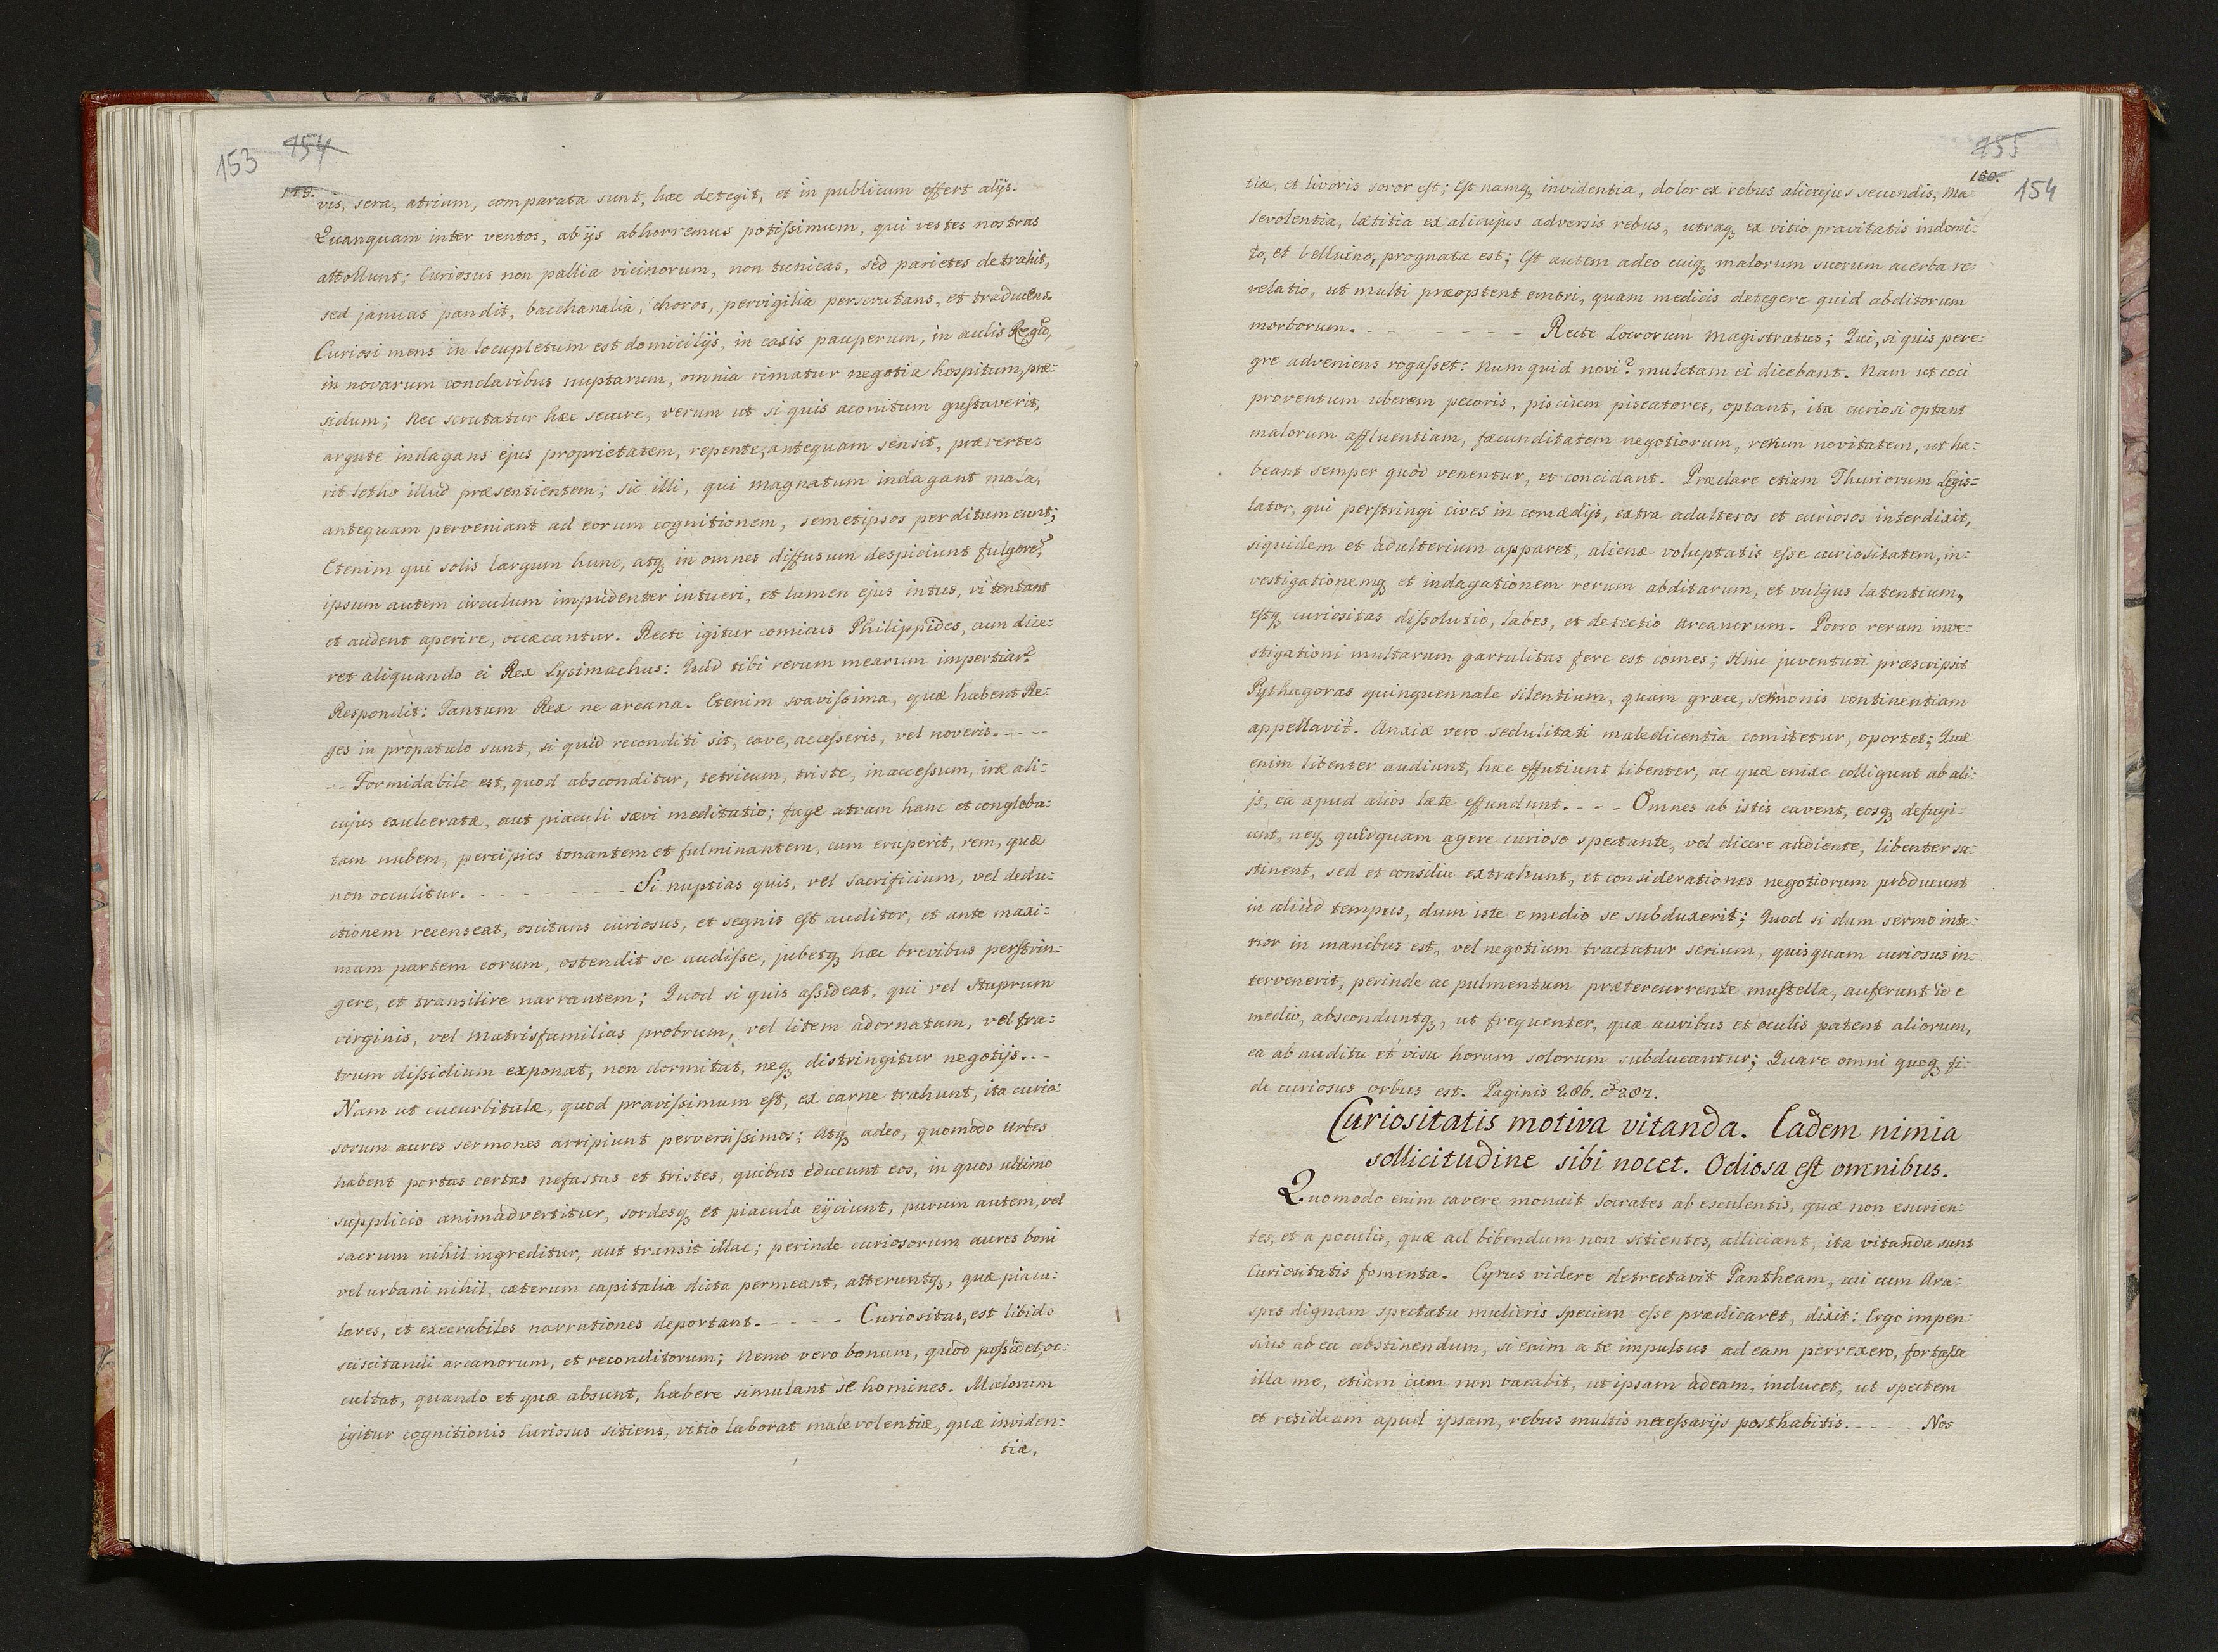 153 154
149.
vis, sera, atrium, comparata sunt, hæc detegit, et in publicum effert alijs.
Quanquam inter ventos, ab ijs abhorremus potissimum, qui vestes nostras
attollunt; Curiosus non pallia vicinorum, non tunicas, sed parietes detrahit,
sed januas pandit, bacchanalia, choros, pervigilia perscrutans, et traducens.
Curiosi mens in locupletum est domicilijs, in casis pauperum, in aulis Regū,
in novarum conclavibus nuptarum, omnia rimatur negotia hospitum, præ-
sidum; Nec scrutatur hæc secure, verum ut si quis aconitum gustaverit,
argute indagans ejus proprietatem, repente, antequam sensit, præverte-
rit letho illud præsentientem; sic illi, qui magnatum indagant mala,
antequam perveniant ad eorum cognitionem, semetipsos perditum eunt;
Etenim qui solis largum hunc, atq in omnes diffusum despiciunt fulgorē,
ipsum autem circulum impudenter intueri, et lumen ejus intus, vi tentant
et audent aperire, occæcantur. Recte igitur comicus Philippides, cum dice-
ret aliquando ei Rex Lysimachus: Quid tibi rerum mearum impertiar?
Respondit: Tantum Rex ne arcana. Etenim suavissima, quæ habent Re-
ges in propatulo sunt, si quid reconditi sit, cave, accesseris, vel noveris. - - -
- - Formidabile est, quod absconditur, tetricum, triste, inaccessum, iræ ali-
cujus exulceratæ, aut piaculi sævi meditatio; fuge atram hanc et congloba-
tam nubem, percipies tonantem et fulminantem, cum eruperit, rem, quæ
non occulitur. - - - - - - - - - Si nuptias quis, vel sacrificium, vel dedu-
ctionem recenseat, oscitans curiosus, et segnis est auditor, et ante maxi-
mam partem eorum, ostendit se audisse, jubetq hæc brevibus perstrin-
gere, et transilire narrantem; Quod si quis assideat, qui vel stuprum
virginis, vel matrisfamilias probrum, vel litem adornatam, vel fra-
trum dissidium exponat, non dormitat, neq distringitur negotijs. - -
Nam ut cucurbitulæ, quod pravissimum est, ex carne trahunt, ita curio-
sorum aures sermones arripiunt perversissimos; Atq adeo, quomodo Urbes
habent portas certas nefastas et tristes, quibus educunt eos, in quos ultimo
supplicio animadvertitur, sordesq et piacula ejiciunt, purum autem, vel
sacrum nihil ingreditur, aut transit illac; perinde curiosorum aures boni
vel urbani nihil, cæterum capitalia dicta permeant, atteruntq, quæ piacu-
lares, et execrabiles narrationes deportant. - - - - - Curiositas, est libido
sciscitandi arcanorum, et reconditorum; Nemo vero bonum, quod possidet, oc-
cultat, quando et quæ absunt, habere simulant se homines. Malorum
igitur cognitionis Curiosus sitiens, vitio laborat malevolentiæ, quæ inviden-
tiæ,
155
150. 154
tiæ, et livoris soror est; Est namq invidentia, dolor ex rebus alicujus secundis, Ma-
levolentia, lætitia ex alicujus adversis rebus, utraq ex vitio pravitatis indomi-
to, et belluino, prognata est; Est autem adeo cuiq malorum suorum acerba re-
velatio, ut multi præoptent emori, quam medicis detegere quid abditorum
morborum. - - - - - - - - - - Recte Locrorum Magistratus; Qui, si quis pere-
gre adveniens rogasset: Num quid novi? mulctam ei dicebant. Nam ut coci
proventum uberem pecoris, piscium piscatores, optant, ita curiosi optant
malorum affluentiam, fæcunditatem negotiorum, rerum novitatem, ut ha-
beant semper quod venentur, et concidant. Præclare etiam Thuriorum Legis-
lator, qui perstringi cives in comædijs, extra adulteros et curiosos interdixit,
siquidem et adulterium apparet, alienæ voluptatis esse curiositatem, in-
vestigationemq et indagationem rerum abditarum, et vulgus latentium,
estq curiositas dissolutio, labes, et detectio Arcanorum. Porro rerum inve-
stigationi multarum garrulitas fere est comes; Hinc juventuti præscripsit
Pythagoras quinquennale silentium, quam græce, sermonis continentiam
appellavit. Anxiæ vero sedulitati maledicentia comitetur, oportet; Quæ
enim libenter audiunt, hæc effutiunt libenter, ac quæ enixe colligunt ab ali-
js, ea apud alios læte effundunt. - - - Omnes ab istis cavent, eosq defugi-
unt, neq quidquam agere curioso spectante, vel dicere audiente, libenter su-
stinent, sed et consilia extrahunt, et considerationes negotiorum producunt
in aliud tempus, dum iste e medio se subduxerit; Quod si dum sermo inte-
rior in manibus est, vel negotium tractatur serium, quisquam curiosus in-
tervenerit, perinde ac pulmentum prætercurrente mustella, auferunt id e
medio, absconduntq, ut frequenter, quæ auribus et oculis patent aliorum,
ea ab auditu et visu horum solorum subducantur; Quare omni quoq fi-
de curiosus orbus est. Paginis 286. & 287.
Curiositatis motiva vitanda. Eadem nimia
sollicitudine sibi nocet. Odiosa est omnibus.
Quomodo enim cavere monuit Socrates ab esculentis, quæ non esurien-
tes, et a poculis, quæ ad bibendum non sitientes, alliciant, ita vitanda sunt
Curiositatis fomenta. Cyrus videre detrectavit Pantheam, cui cum Ara-
spes dignam spectatu mulieris speciem esse prædicaret, dixit: Ergo impen-
sius ab ea abstinendum, si enim a te impulsus ad eam perrexero, fortasse
illa me, etiam cum non vacabit, ut ipsam adeam, inducet, ut spectem
et resideam apud ipsam, rebus multis necessarijs posthabitis. - - - - Nos